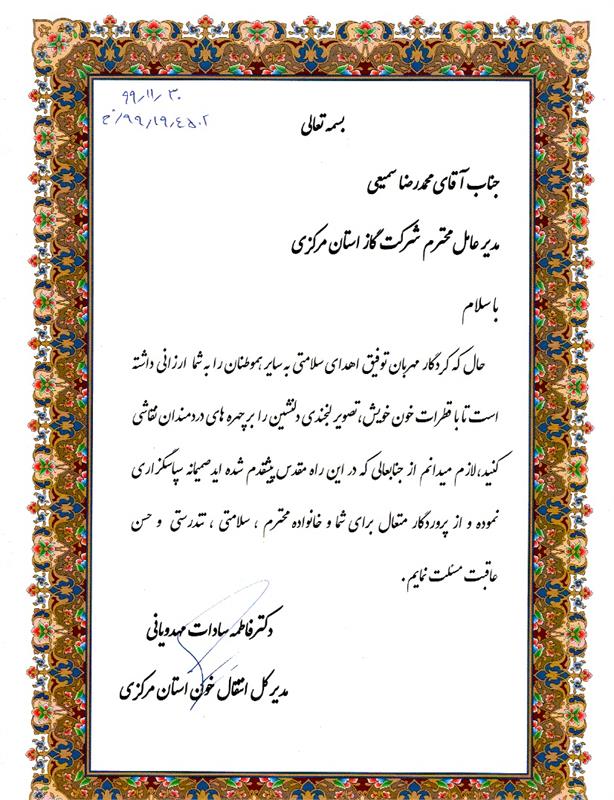 ۹۹٫۱۱٫۳۰
۹۹٫۱۹٫۴۵۰۲٫خ
بسمه تعالی
جناب آقای محمدرضا سمیعی
مدیر عامل محترم شرکت گاز استان مرکزی
با سلام
حال که کردگار مهربان توفیق اهدای سلامتی به سایر هموطنان را به شما ارزانی داشته
است تا با قطرات خون خویش، تصویر لبخندی دلنشین را بر چهره های دردمندان نقاشی
کنید، لازم میدانم از جنابعالی که در این راه مقدس پیشقدم شده اید صمیمانه سپاسگزاری
نموده و از پروردگار متعال برای شما و خانواده محترم ، سلامتی ، تندرستی و حسن
عاقبت مسئلت نمایم .
دکتر فاطمه سادات مهدویانی
مدیر کل انتقال خون استان مرکزی